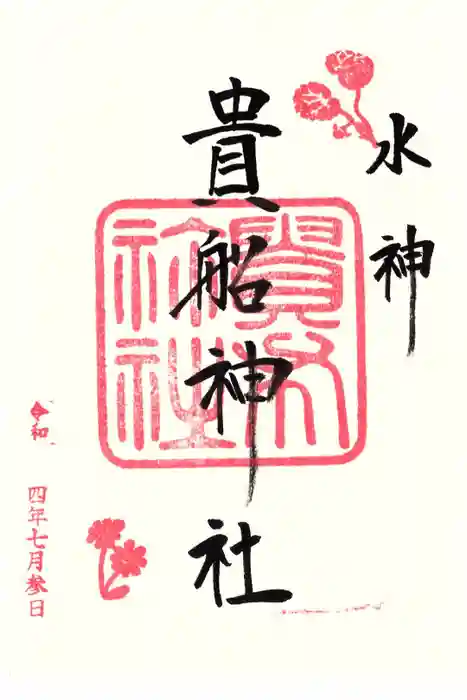 水神
貴船神社
貴船神社
令和
四年七月参日